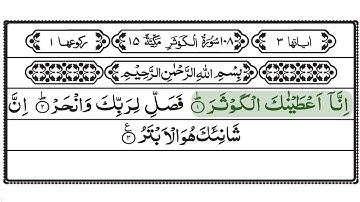 اٰیاتها ٣ ١٠٨ سُوْرَةُ الْكَوْثَرِ مَكِّيَّةٌ ١٥ رکوعها ١
بِسْمِ اللّٰهِ الرَّحْمٰنِ الرَّحِيْمِ
اِنَّاۤ اَعْطَيْنٰكَ الْكَوْثَرَؕ۝١ فَصَلِّ لِرَبِّكَ وَانْحَرْؕ۝٢ اِنَّ
شَانِئَكَ هُوَ الْاَبْتَرُ۝٣ع